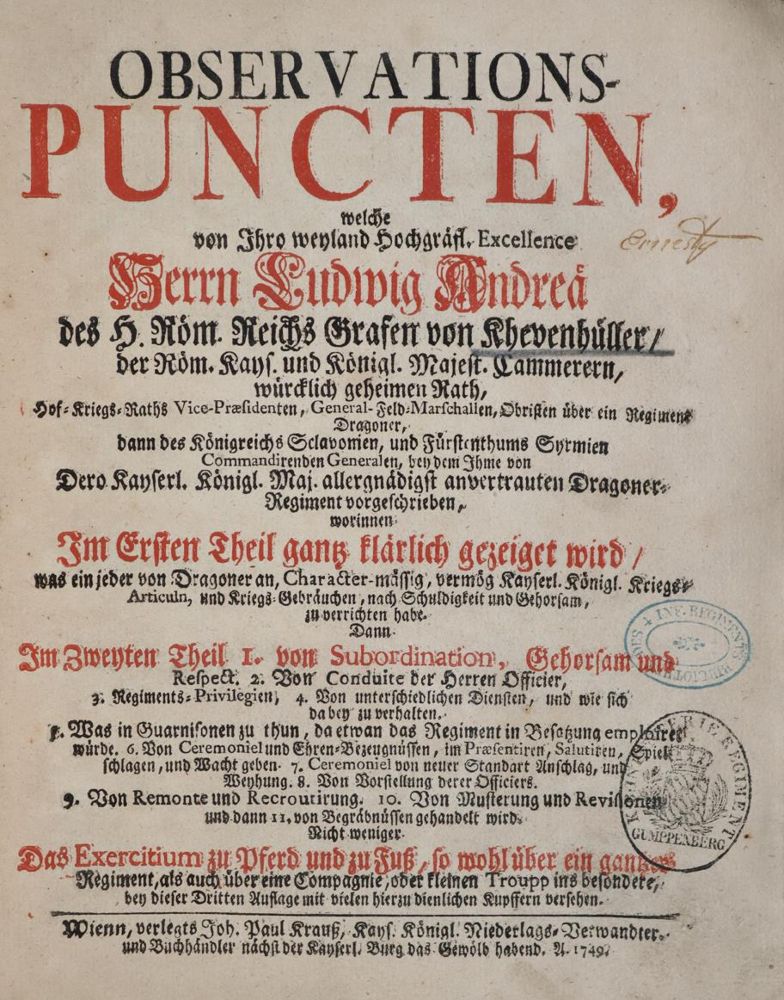 OBSERVATIONS-
PUNCTEN,
welche
von Ihro weyland Hochgräfl. Excellence
Ernesty
Herrn Ludwig Andreä
des H. Röm. Reichs Grafen von Khevenhüller/
der Röm. Kays. und Königl. Majest. Cammerern,
würcklich geheimen Rath,
Hof-Kriegs-Raths Vice-Præsidenten, General-Feld-Marschallen, Obristen über ein Regiment
Dragoner,
dann des Königreichs Sclavonien, und Fürstenthums Syrmien
Commandirenden Generalen, bey dem Ihme von
Dero Kayserl. Königl. Maj. allergnädigst anvertrauten Dragoner-
Regiment vorgeschrieben,
worinnen
Im Ersten Theil gantz klärlich gezeiget wird/
was ein jeder von Dragoner an, Character-mässig, vermög Kayserl. Königl. Kriegs-
Articuln, und Kriegs-Gebräuchen, nach Schuldigkeit und Gehorsam,
zu verrichten habe.
Dann
Im Zweyten Theil 1. von Subordination, Gehorsam und
Respect. 2. Von Conduite der Herren Officier,
3. Regiments-Privilegien, 4. Von unterschiedlichen Diensten, und wie sich
dabey zu verhalten.
5. Was in Guarnisonen zu thun, da etwan das Regiment in Besatzung employret
würde. 6. Von Ceremoniel und Ehren-Bezeugnüssen, im Præsentiren, Salutiren, Spiel
schlagen, und Wacht geben. 7. Ceremoniel von neuer Standart Anschlag, und
Weyhung. 8. Von Vorstellung derer Officiers.
9. Von Remonte und Recroutirung. 10. Von Musterung und Revisionen
und dann 11. von Begräbnüssen gehandelt wird.
Nicht weniger
Das Exercitium zu Pferd und zu Fuß, so wohl über ein gantzes
Regiment, als auch über eine Compagnie, oder kleinen Troupp ins besondere,
bey dieser Dritten Auflage mit vielen hierzu dienlichen Kupffern versehen.
GUMPPENBERG
Wienn, verlegts Joh. Paul Krauß, Kays. Königl. Niederlags-Verwandter,
und Buchhändler nächst der Kayserl. Burg das Gewölb habend. A. 1749.